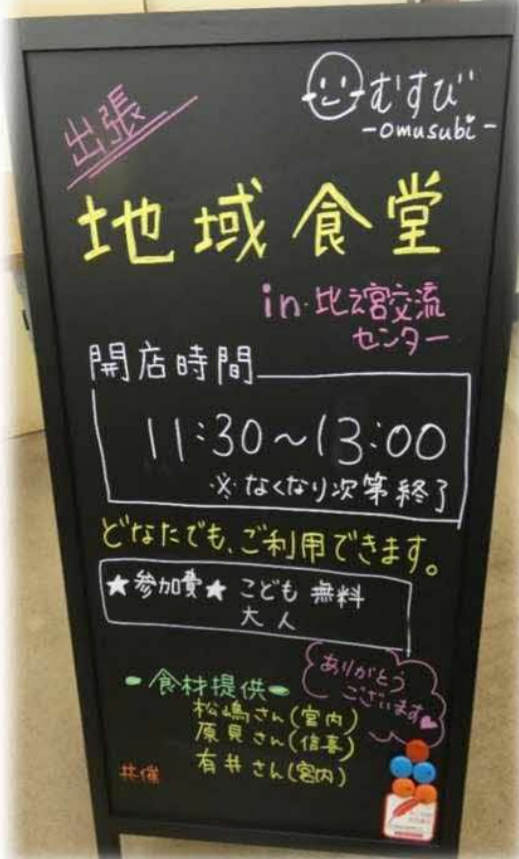 出張
むすび
-omusubi-
地域食堂
in 比之宮交流
センター
開店時間
11:30～13:00
※なくなり次第終了
どなたでも、ご利用できます。
★参加費★ こども 無料
大人
-食材提供-
ありがとう
ございます
松嶋さん(宮内)
原貝さん(信喜)
有井さん(宮内)
共催